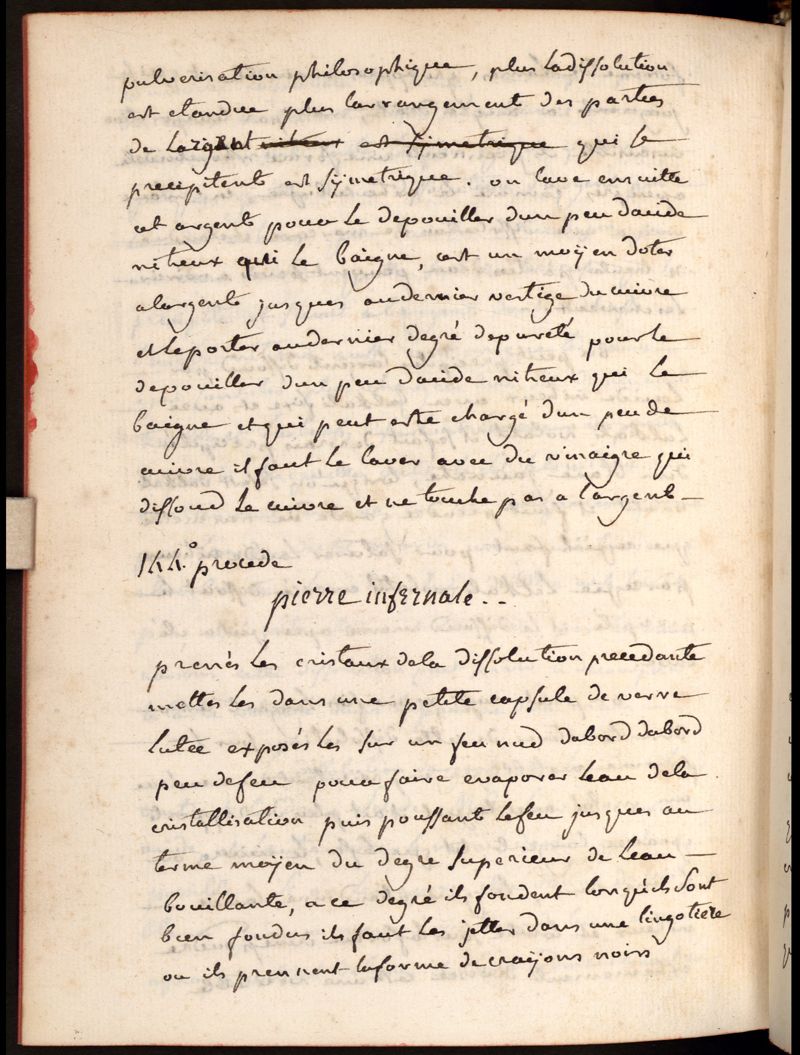 pulverisation philosophique, plus la dissolution
est etandue plus larrangement des parties
de largent nitreux est symetrique qui se
precipitent est symetrique. on lave ensuitte
cet argent pour le depouiller dun peu dacide
nitreux qui le baigne, cest un moyen doter
alargent jusques audernier vertige du cuivre
et leporter audernier degré depureté pour le
depouiller dun peu dacide nitreux qui le
baigne et qui peut estre chargé dun peu de
cuivre il faut le laver avec du vinaigre qui
dissoud le cuivre et ne touche pas a largent —
144.° procede
pierre infernale. . .
prenés les cristaux dela dissolution precedante
mettes les dans une petite capsule de verre
lutée exposés les sur un feu nud dabord dabord
peu defeu pour faire evaporer leau dela
cristallisation puis poussant lefeu jusques au
terme moÿen du degre superieur de leau —
bouillante, a ce degré ils fondent lorsquils sont
bien fondus ils faut les jetter dans une lingotiere
ou ils prennent laforme de craÿons noirs